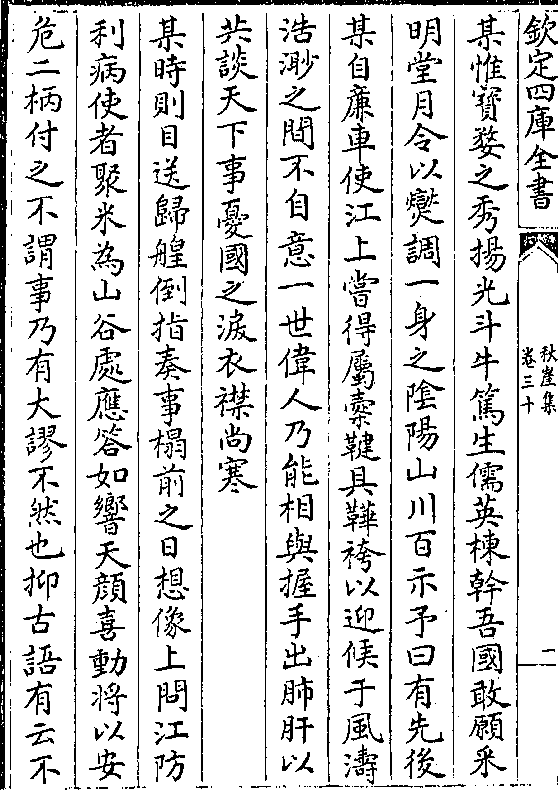 欽定四庫全書
秋崖集
卷三十
一
某惟寳婺之秀揚光斗牛篤生儒英棟幹吾國敢願釆
明堂月令以燮調一身之陰陽山川百示予曰有先後
某自亷車使江上嘗得屬櫜鞬具鞾袴以迎候于風濤
浩渺之間不自意一世偉人乃能相與握手出肺肝以
共談天下事憂國之淚衣襟尚寒
某時則目送歸艎倒指奏事榻前之日想像上問江防
利病使者聚米為山谷處應答如響天顔喜動將以安
危二柄付之不謂事乃有大謬不然也抑古語有云不